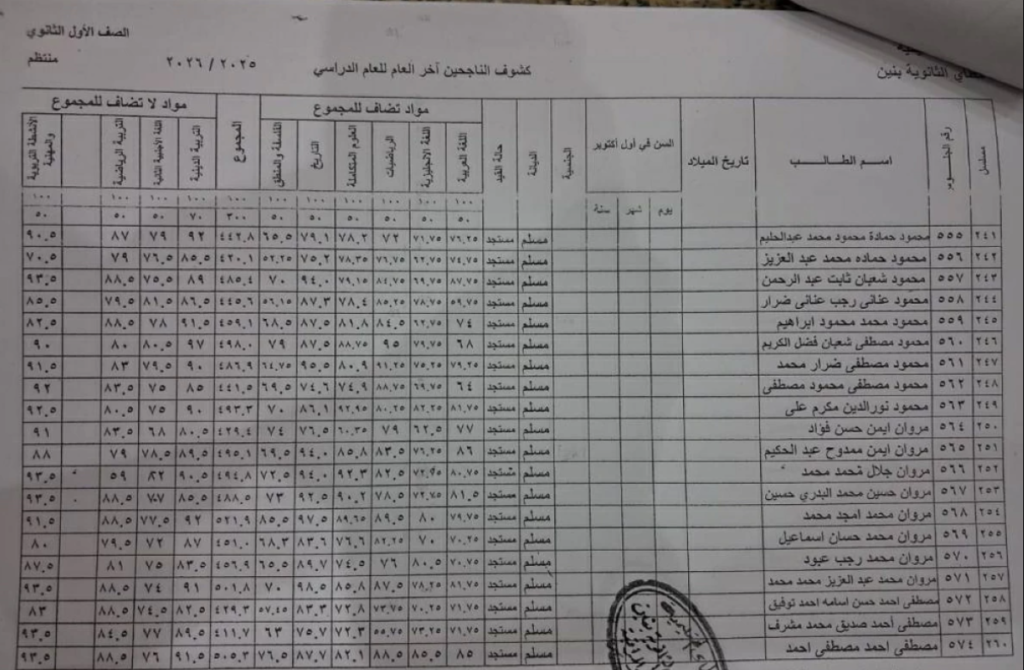 الصف الأول الثانوي
الثانوية بنين
كشوف الناجحين آخر العام للعام الدراسي ٢٠٢٥ / ٢٠٢٦ منتظم
مسلسل رقم الجلوس اسم الطالب تاريخ الميلاد السن في أول أكتوبر الجنسية الديانة حالة القيد مواد تضاف للمجموع المجموع مواد لا تضاف للمجموع
يوم شهر سنة اللغة العربية اللغة الانجليزية الرياضيات العلوم المتكاملة التاريخ الفلسفة والمنطق التربية الدينية اللغة الاجنبية الثانية التربية الرياضية الأنشطة التربوية والمهنية
١٠٠ ١٠٠ ١٠٠ ١٠٠ ١٠٠ ١٠٠ ١٠٠ ١٠٠ ١٠٠ ١٠٠
٥٠ ٥٠ ٥٠ ٥٠ ٥٠ ٥٠ ٣٠٠ ٧٠ ٥٠ ٥٠ ٥٠
٢٤١ ٥٥٥ محمود حمادة محمود محمد عبدالحليم مسلم مستجد ٧٦.٢٥ ٧١.٧٥ ٧٢ ٧٨.٢ ٧٩.١ ٦٥.٥ ٤٤٢.٨ ٩٢ ٧٩ ٨٧ ٩٠.٥
٢٤٢ ٥٥٦ محمود حماده محمد عبد العزيز مسلم مستجد ٧٤.٧٥ ٦٢.٧٥ ٧٦.٧٥ ٧٨.٣٥ ٧٥.٢ ٥٢.٢٥ ٤٢٠.١ ٨٥.٥ ٧٦.٥ ٧٩ ٧٠.٥
٢٤٣ ٥٥٧ محمود شعبان ثابت عبد الرحمن مسلم مستجد ٨٧.٧٥ ٦٩.٧٥ ٨٤.٧٥ ٧٩.١٥ ٩٤.٠ ٧٠ ٤٨٥.٤ ٨٩ ٧٥.٥ ٨٨.٥ ٩٣.٥
٢٤٤ ٥٥٨ محمود عنانى رجب عنانى ضرار مسلم مستجد ٥٩.٧٥ ٧٨.٧٥ ٨٥.٢٥ ٧٨.٤ ٨٧.٣ ٥٦.١٥ ٤٤٥.٦ ٨٦.٥ ٨١.٥ ٧٩.٥ ٨٥.٥
٢٤٥ ٥٥٩ محمود محمد محمود ابراهيم مسلم مستجد ٧٤ ٦٢.٧٥ ٨٤.٥ ٨١.٨ ٨٧.٥ ٦٨.٥ ٤٥٩.١ ٩١.٥ ٧٨ ٨٨.٥ ٨٢.٥
٢٤٦ ٥٦٠ محمود مصطفى شعبان فضل الكريم مسلم مستجد ٦٨ ٧٩.٧٥ ٩٥ ٨٨.٧٥ ٨٧.٥ ٧٩ ٤٩٨.٠ ٩٧ ٨٠.٥ ٨٠ ٩٠
٢٤٧ ٥٦١ محمود مصطفى ضرار محمد مسلم مستجد ٧٩.٢٥ ٧٥.٢٥ ٩١.٢٥ ٨٠.٩ ٩٥.٥ ٦٤.٧٥ ٤٨٦.٩ ٩٠ ٧٩.٥ ٨٣ ٩١.٥
٢٤٨ ٥٦٢ محمود مصطفى محمود مصطفى مسلم مستجد ٦٤ ٦٩.٧٥ ٨٨.٧٥ ٧٤.٩ ٧٤.٦ ٦٩.٥ ٤٤١.٥ ٨٥ ٧٥ ٨٣.٥ ٩٢
٢٤٩ ٥٦٣ محمود نورالدين مكرم على مسلم مستجد ٨١.٧٥ ٨٢.٢٥ ٨٠.٢٥ ٩٢.٩٥ ٨٦.١ ٧٠ ٤٩٣.٣ ٩٠ ٧٥ ٨٠.٥ ٩٢.٥
٢٥٠ ٥٦٤ مروان ايمن حسن فؤاد مسلم مستجد ٧٧ ٦٢.٥ ٧٩ ٦٠.٣٥ ٧٦.٥ ٧٤ ٤٢٩.٤ ٨٠.٥ ٦٨ ٨٣.٥ ٩١
٢٥١ ٥٦٥ مروان ايمن ممدوح عبد الحكيم مسلم مستجد ٨٦ ٧٦.٢٥ ٨٣.٥ ٨٥.٨ ٩٤.٠ ٦٩.٥ ٤٩٥.١ ٨٩.٥ ٧٨.٥ ٧٩ ٨٨
٢٥٢ ٥٦٦ مروان جلال محمد محمد مسلم مستجد ٨٠.٧٥ ٧٢.٧٥ ٨٢.٥ ٩٢.٣ ٩٤.٠ ٧٢.٥ ٤٩٤.٨ ٩٠.٥ ٨٢ ٥٩ ٩٣.٥
٢٥٣ ٥٦٧ مروان حسين محمد البدري حسين مسلم مستجد ٨١.٥ ٧٢.٧٥ ٧٨.٥ ٩٠.٢ ٩٢.٥ ٧٣ ٤٨٨.٥ ٨٥.٥ ٧٧ ٨٨.٥ ٩٣.٥
٢٥٤ ٥٦٨ مروان محمد امجد محمد مسلم مستجد ٧٩.٧٥ ٨٠ ٨٩.٥ ٨٩.٦٥ ٩٧.٥ ٨٥.٥ ٥٢١.٩ ٩٢ ٧٧.٥ ٨٨.٥ ٩١.٥
٢٥٥ ٥٦٩ مروان محمد حسان اسماعيل مسلم مستجد ٧٠.٢٥ ٧٠ ٨٢.٢٥ ٧٦.٦ ٨٣.٦ ٦٨.٣ ٤٥١.٠ ٨٧ ٧٢ ٧٩.٥ ٨٠
٢٥٦ ٥٧٠ مروان محمد رجب عبود مسلم مستجد ٧٠.٧٥ ٨٠.٥ ٧٦ ٧٤.٥ ٨٩.٧ ٦٥.٥ ٤٥٦.٩ ٨٣.٥ ٧٥ ٨١ ٨٧.٥
٢٥٧ ٥٧١ مروان محمد عبد العزيز محمد محمد مسلم مستجد ٨١.٧٥ ٧٨.٢٥ ٨٧.٥ ٨٥.٨ ٩٨.٥ ٧٠ ٥٠١.٨ ٩١ ٧٤ ٨٨.٥ ٩٣.٥
٢٥٨ ٥٧٢ مصطفى احمد حسن اسامه احمد توفيق مسلم مستجد ٧١.٧٥ ٧٠.٢٥ ٧٣.٧٥ ٧٢.٨ ٨٣.٣ ٥٧.٤٥ ٤٢٩.٣ ٨٢.٥ ٧٤.٥ ٨٨.٥ ٨٣
٢٥٩ ٥٧٣ مصطفى أحمد صديق محمد مشرف مسلم مستجد ٧١.٧٥ ٧٣.٢٥ ٥٥.٧٥ ٧٢.٣ ٧٥.٧ ٦٣ ٤١١.٧ ٨٩.٥ ٧٧ ٨٤.٥ ٩٣.٥
٢٦٠ ٥٧٤ مصطفى احمد مصطفى احمد مسلم مستجد ٨٥ ٨٥.٥ ٨٨.٥ ٨٢.١ ٨٧.٧ ٧٦.٥ ٥٠٥.٣ ٩١.٥ ٧٦ ٨٨.٥ ٩٣.٥